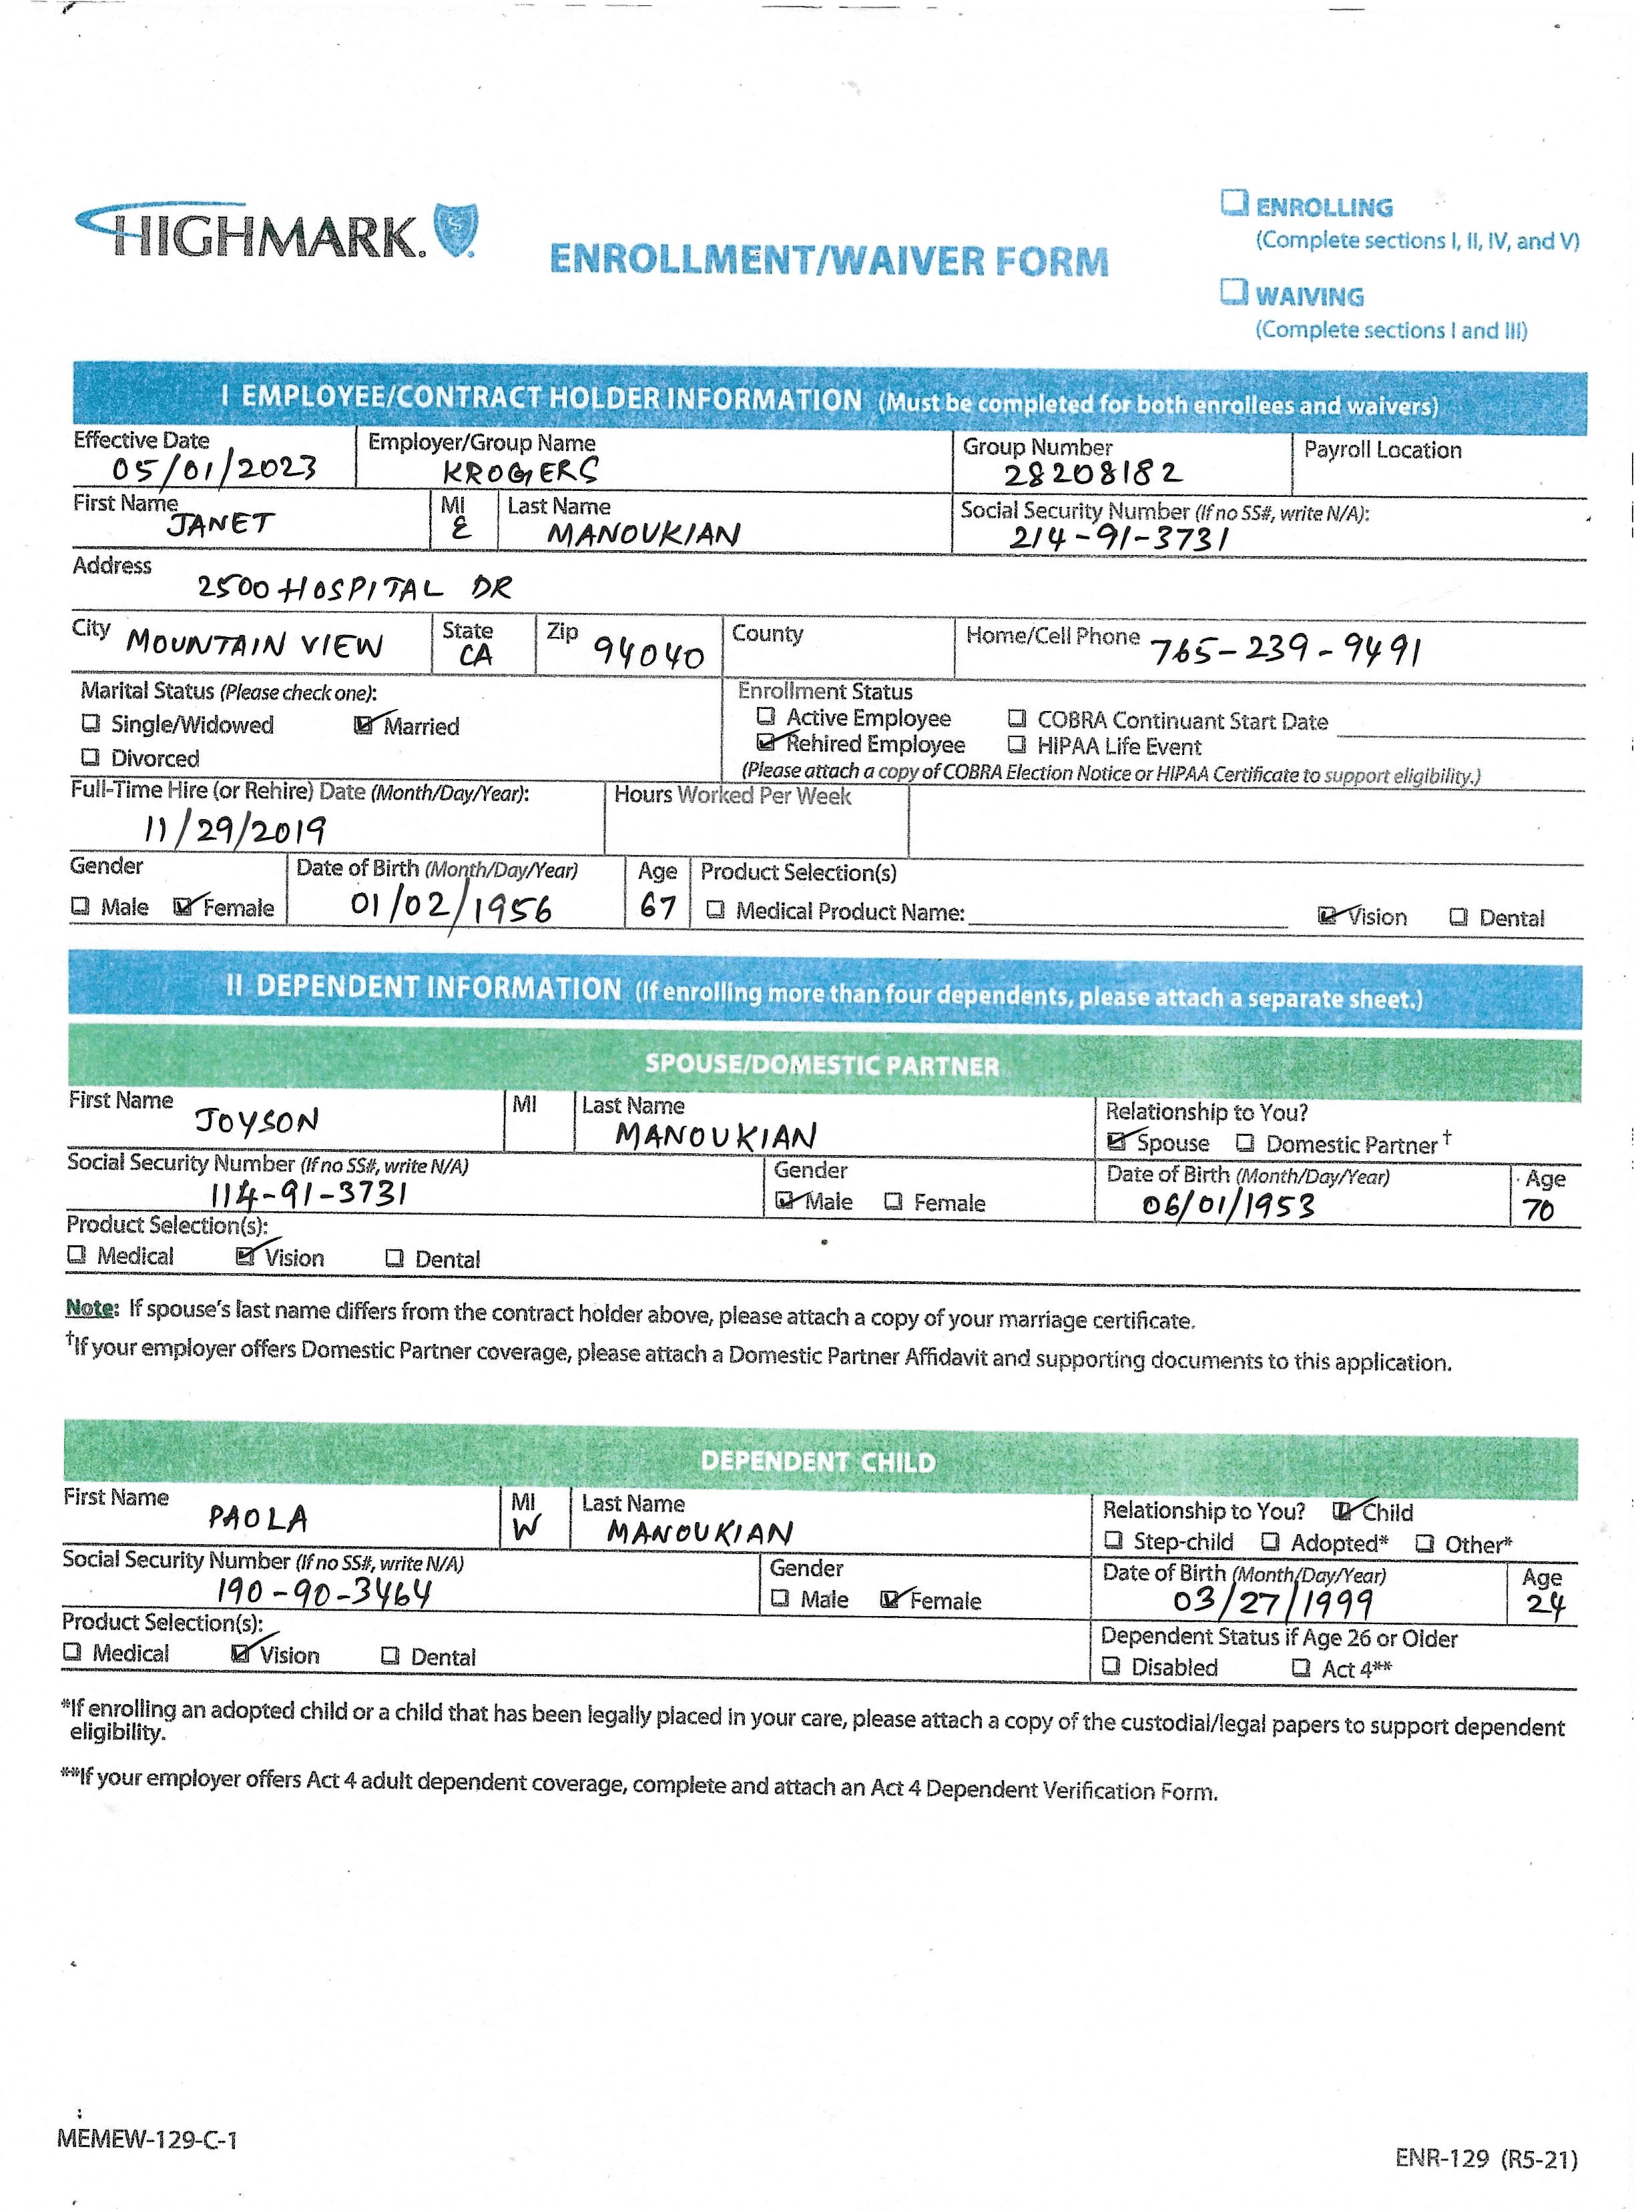 HIGHMARK.
ENROLLMENT/WAIVER FORM
❑ ENROLLING
(Complete sections I, II, IV, and V)
❑ WAIVING
(Complete sections I and III)
I EMPLOYEE/CONTRACT HOLDER INFORMATION (Must be completed for both enrollees and waivers)
Effective Date Employer/Group Name Group Number Payroll Location
05/01/2023 KROGERS 28208182
First Name MI Last Name Social Security Number (If no SS#, write N/A):
JANET E MANOUKIAN 214-91-3731
Address
2500 HOSPITAL DR
City MOUNTAIN VIEW State CA Zip 94040 County Home/Cell Phone 765-239-9491
Marital Status (Please check one): Enrollment Status
❑ Single/Widowed ☑ Married ❑ Active Employee ❑ COBRA Continuant Start Date
❑ Divorced ☑ Rehired Employee ❑ HIPAA Life Event
(Please attach a copy of COBRA Election Notice or HIPAA Certificate to support eligibility.)
Full-Time Hire (or Rehire) Date (Month/Day/Year): Hours Worked Per Week
11/29/2019
Gender Date of Birth (Month/Day/Year) Age Product Selection(s)
❑ Male ☑ Female 01/02/1956 67 ❑ Medical Product Name: ☑ Vision ❑ Dental
II DEPENDENT INFORMATION (If enrolling more than four dependents, please attach a separate sheet.)
SPOUSE/DOMESTIC PARTNER
First Name MI Last Name Relationship to You?
JOYSON MANOUKIAN ☑ Spouse ❑ Domestic Partner†
Social Security Number (If no SS#, write N/A) Gender Date of Birth (Month/Day/Year) Age
114-91-3731 ☑ Male ❑ Female 06/01/1953 70
Product Selection(s):
❑ Medical ☑ Vision ❑ Dental
Note: If spouse's last name differs from the contract holder above, please attach a copy of your marriage certificate.
†If your employer offers Domestic Partner coverage, please attach a Domestic Partner Affidavit and supporting documents to this application.
DEPENDENT CHILD
First Name MI Last Name Relationship to You? ☑ Child
PAOLA W MANOUKIAN ❑ Step-child ❑ Adopted* ❑ Other*
Social Security Number (If no SS#, write N/A) Gender Date of Birth (Month/Day/Year) Age
190-90-3464 ❑ Male ☑ Female 03/27/1999 24
Product Selection(s): Dependent Status if Age 26 or Older
❑ Medical ☑ Vision ❑ Dental ❑ Disabled ❑ Act 4**
*If enrolling an adopted child or a child that has been legally placed in your care, please attach a copy of the custodial/legal papers to support dependent
eligibility.
**If your employer offers Act 4 adult dependent coverage, complete and attach an Act 4 Dependent Verification Form.
MEMEW-129-C-1
ENR-129 (R5-21)